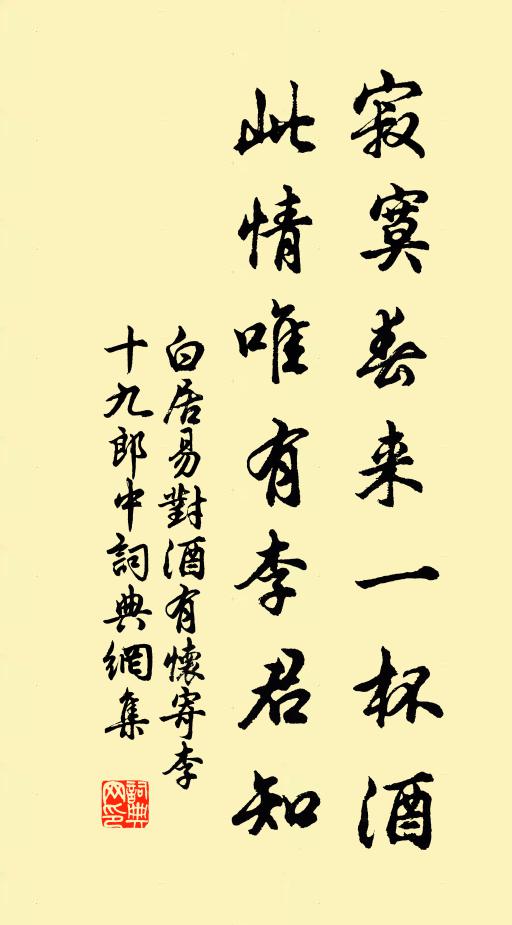 寂寞春来一杯酒
此情唯有李君知
白居易對酒有懷寄李
十九郎中詞典網集
詞典
网印